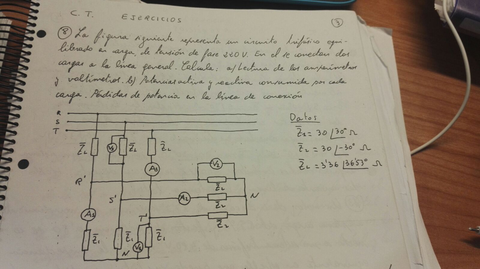 C.T. EJERCICIOS
③
⑧ La figura siguiente representa un circuito trifásico equi-
librado a sequ. de tensión de fase 220V. En el se conectan dos
cargas a la línea general. Calcula: a) Lectura de los amperímetros
y voltímetros. b) Potencia activa y reactiva consumida por cada
carga. Pérdidas de potencia en la línea de conexión
R
S
T
Datos
Z̄₁ = 30 /30° Ω
Z̄₂ = 30 /-30° Ω
Z̄L = 3'36 /36'53° Ω
Z̄L
Z̄L
Z̄L
V₂
R'
S'
T'
A₂
Z̄₂
Z̄₂
Z̄₂
N
Z̄₁
Z̄₁
Z̄₁
N